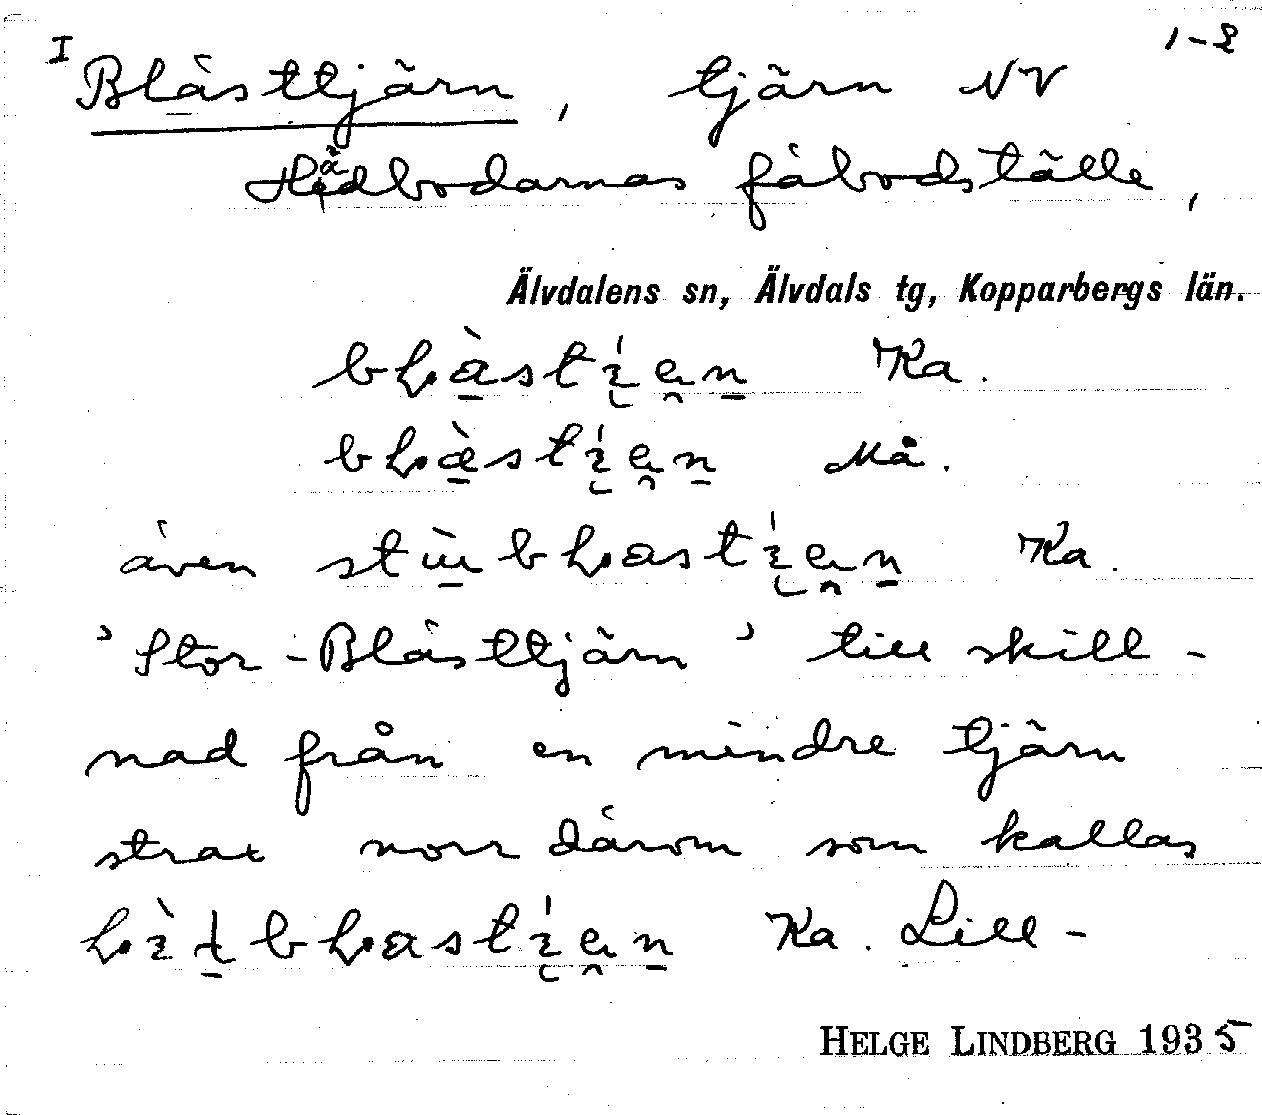 I 1-2
Blåsttjärn, tjärn NV
Hädbodarnas fäbodställe,
Älvdalens sn, Älvdals tg, Kopparbergs län.
Ka.
Må.
även Ka.
'Stor-Blåsttjärn' till skill-
nad från en mindre tjärn
strax norr därom som kallas
Ka. Lill-
HELGE LINDBERG 1935